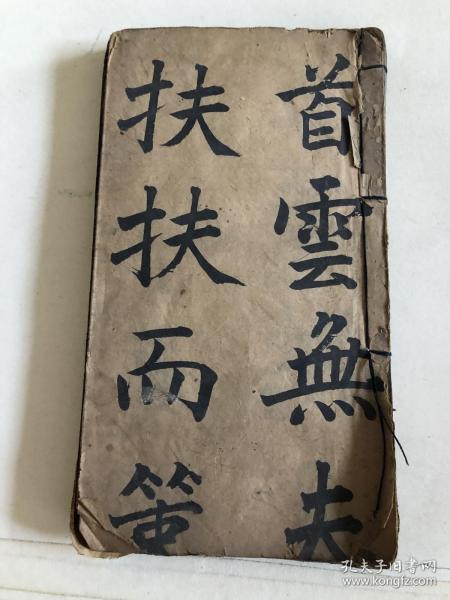 首雲無夫
扶扶而策
孔夫子旧书网
www.kongfz.com